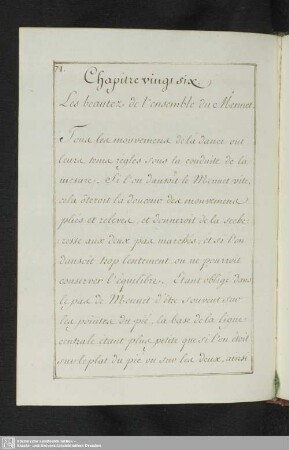 74.
Chapitre vingt six,
Les beautez de l'ensemble du Menuet.
Tous les mouvemens de la dance ont
leurs tems reglés sous la conduite de la
mesure. Si l'on dansoit le Menuet vite,
cela ôteroit la douceur des mouvemens
pliés et relevés, et donneroit de la seche
resse aux deux pas marchés, et si l'on
dansoit trop lentement on ne pourroit
conserver l'équilibre. Etant obligé dans
le pas de Menuet d'être souvent sur
les pointes du pié, la base de la ligne
centrale étant plus petite que si l'on étoit
sur le plat du pié ou sur les deux, ainsi